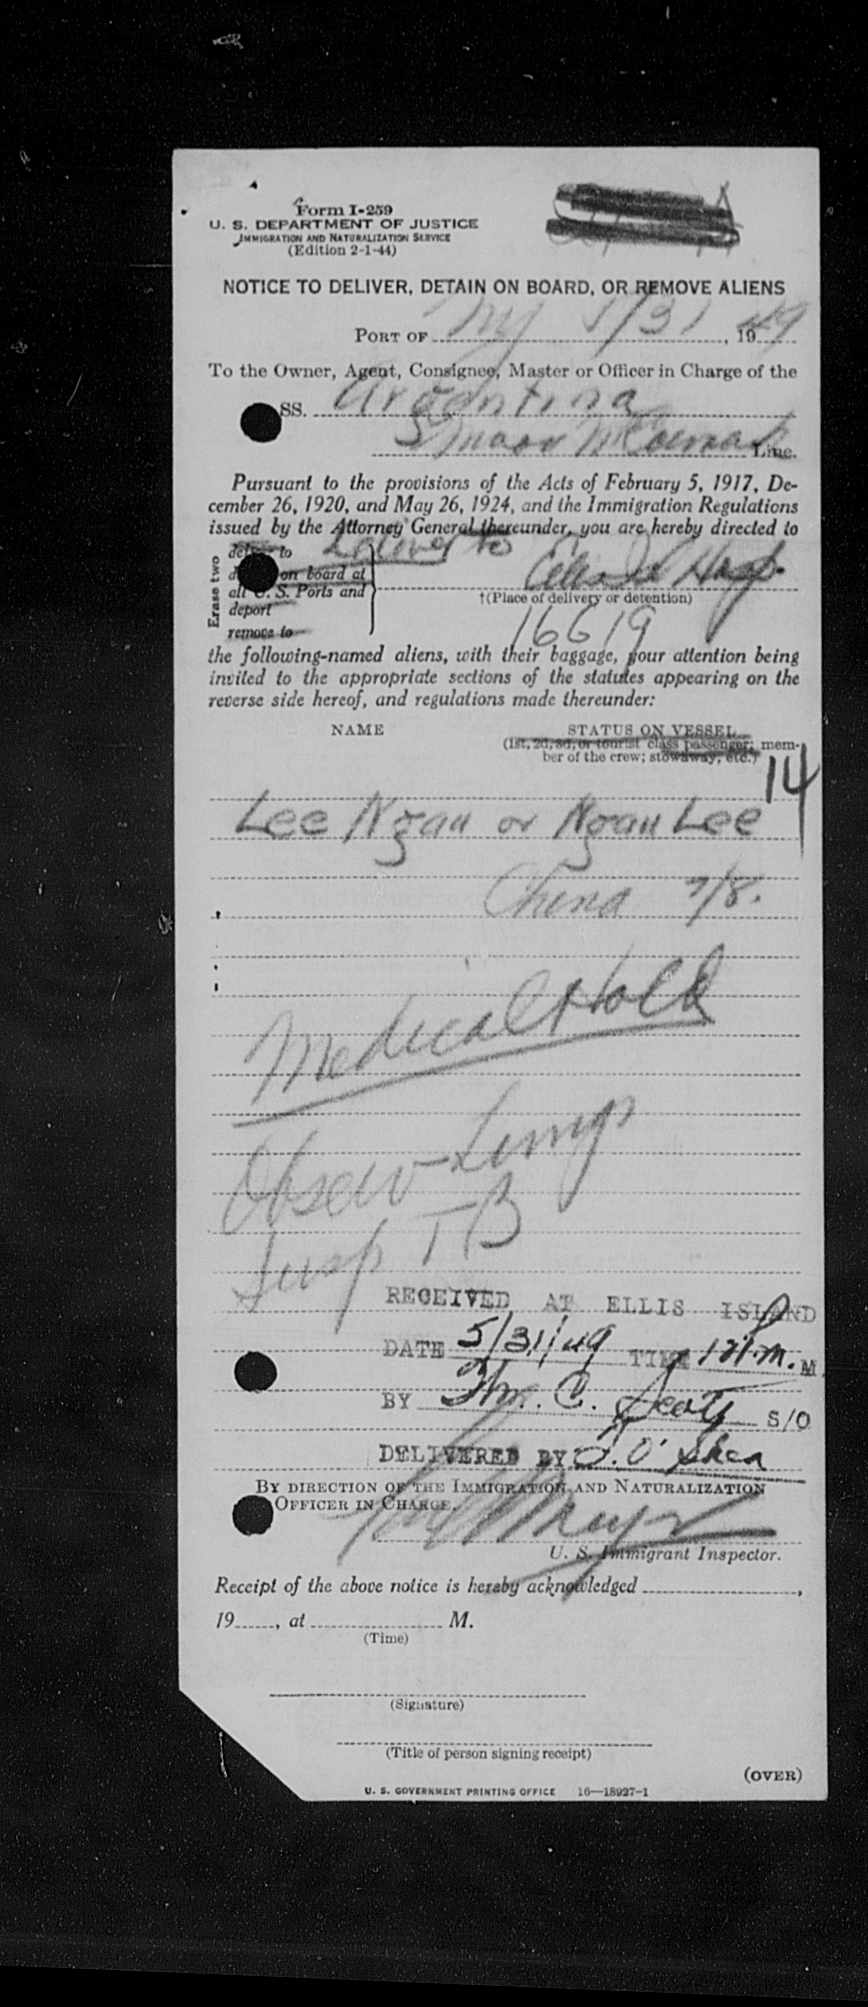 Form I-259
U. S. DEPARTMENT OF JUSTICE
IMMIGRATION AND NATURALIZATION SERVICE
(Edition 2-1-44)
NOTICE TO DELIVER, DETAIN ON BOARD, OR REMOVE ALIENS
PORT OF NY 5/31, 1949
To the Owner, Agent, Consignee, Master or Officer in Charge of the
SS. Argentina
Moor McCormack Line.
Pursuant to the provisions of the Acts of February 5, 1917, De-
cember 26, 1920, and May 26, 1924, and the Immigration Regulations
issued by the Attorney General thereunder, you are hereby directed to
Erase two
deliver to Deliver to
on board at Ellis Is Hosp.
all U. S. Ports and
†(Place of delivery or detention)
deport
remove to 16619
the following-named aliens, with their baggage, your attention being
invited to the appropriate sections of the statutes appearing on the
reverse side hereof, and regulations made thereunder:
NAME STATUS ON VESSEL
(1st, 2d, 3d, or tourist class passenger; mem-
ber of the crew; stowaway, etc.)
14
Lee Ngan or Ngan Lee
China 7/8.
Medical Hold
Observ Lungs
Susp TB
RECEIVED AT ELLIS ISLAND
DATE 5/31/49 TIME M.
BY Thm. C. S/O
DELIVERED BY J. O'Shea
BY DIRECTION OF THE IMMIGRATION AND NATURALIZATION
OFFICER IN CHARGE.
U. S. Immigrant Inspector.
Receipt of the above notice is hereby acknowledged ,
19 , at M.
(Time)
(Signature)
(Title of person signing receipt)
(OVER)
U. S. GOVERNMENT PRINTING OFFICE 16—18927-1